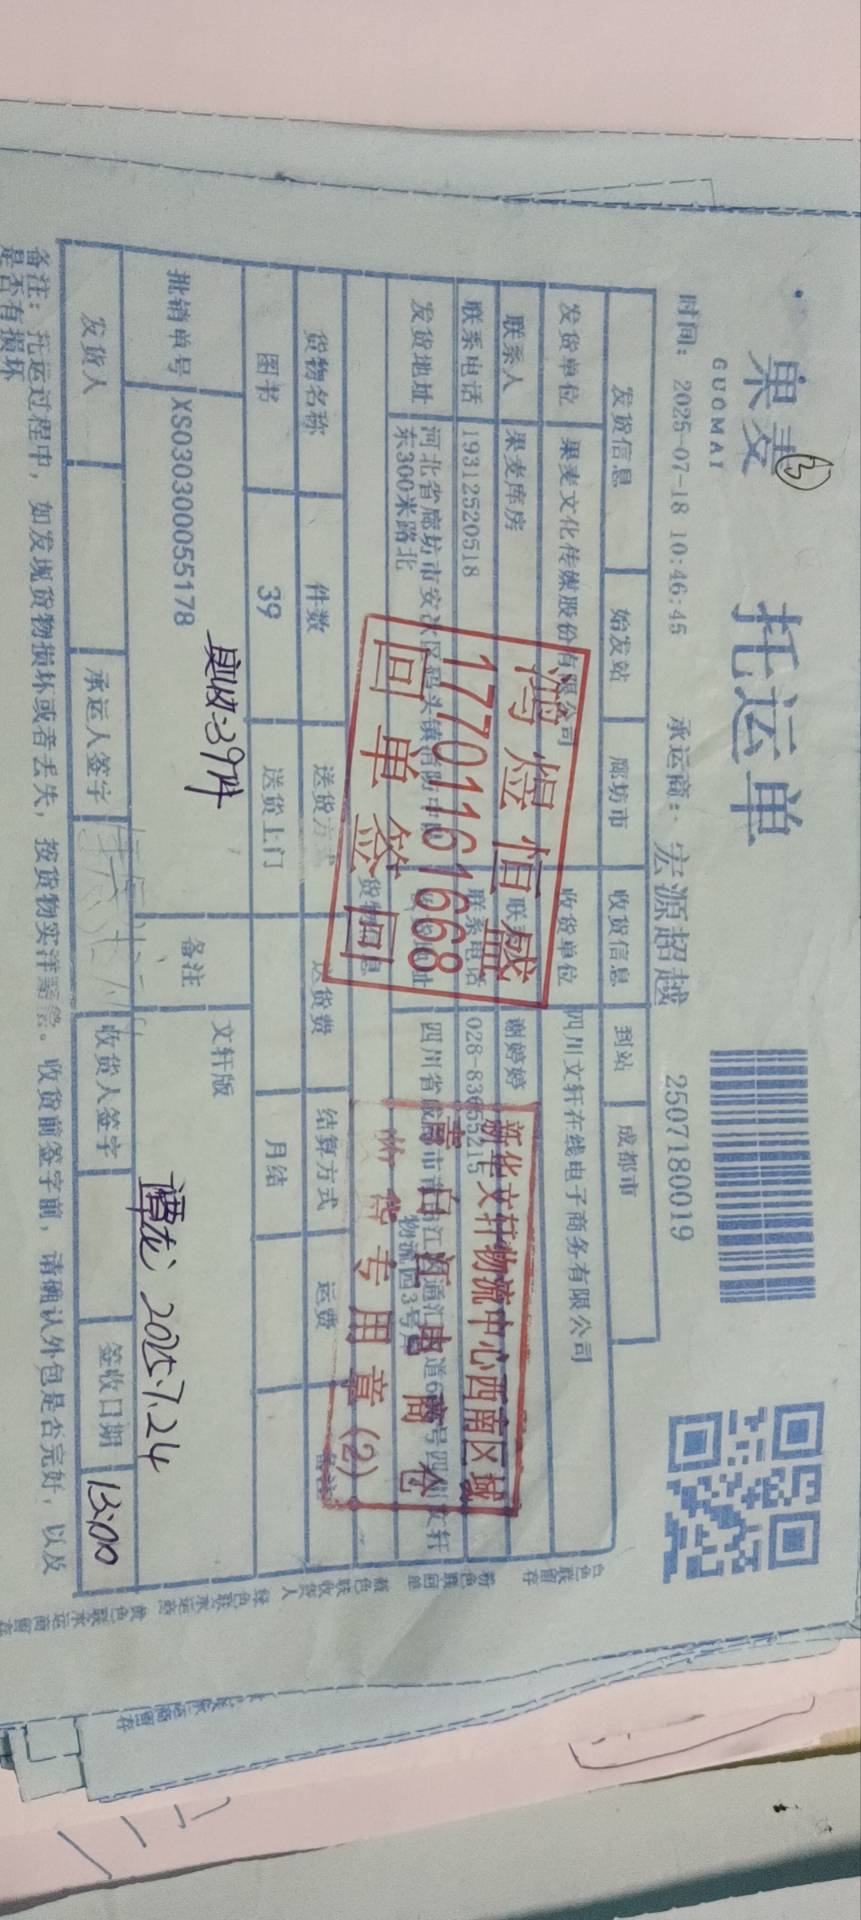 果麦
GUOMAI
3
托运单
时间：2025-07-18 10:46:45 承运商：宏源超越 2507180019
发货信息 始发站 廊坊市 收货信息 到站 成都市
发货单位 果麦文化传媒股份有限公司 收货单位 四川文轩在线电子商务有限公司
联系人 果麦库房 联 谢婷婷
联系电话 19312520518 联系电话 028-83655215
发货地址 河北省廊坊市安次区码头镇消防中队东300米路北 地址 四川省成都市青白江区通汇大道6 号四川文轩物流园3号库
货物信息
货物名称 件数 送货方式 送货费 结算方式 运费 备注
图书 39 送货上门 月结
批销单号 XS030300055178 备注 文轩版
实收:39件
谭龙 2025.7.24
发货人 承运人签字 收货人签字 签收日期 13:00
备注：托运过程中，如发现货物损坏或者丢失，按货物实洋赔偿。收货前签字前，请确认外包是否完好，以及是否有损坏
鸿煜恒盛
17701161668
回单签回
新华文轩物流中心西南区域
青白江电商仓
收货专用章(2)
白色联留存
粉色联回单
蓝色联收货人
绿色联承运商
黄色联承运商留存